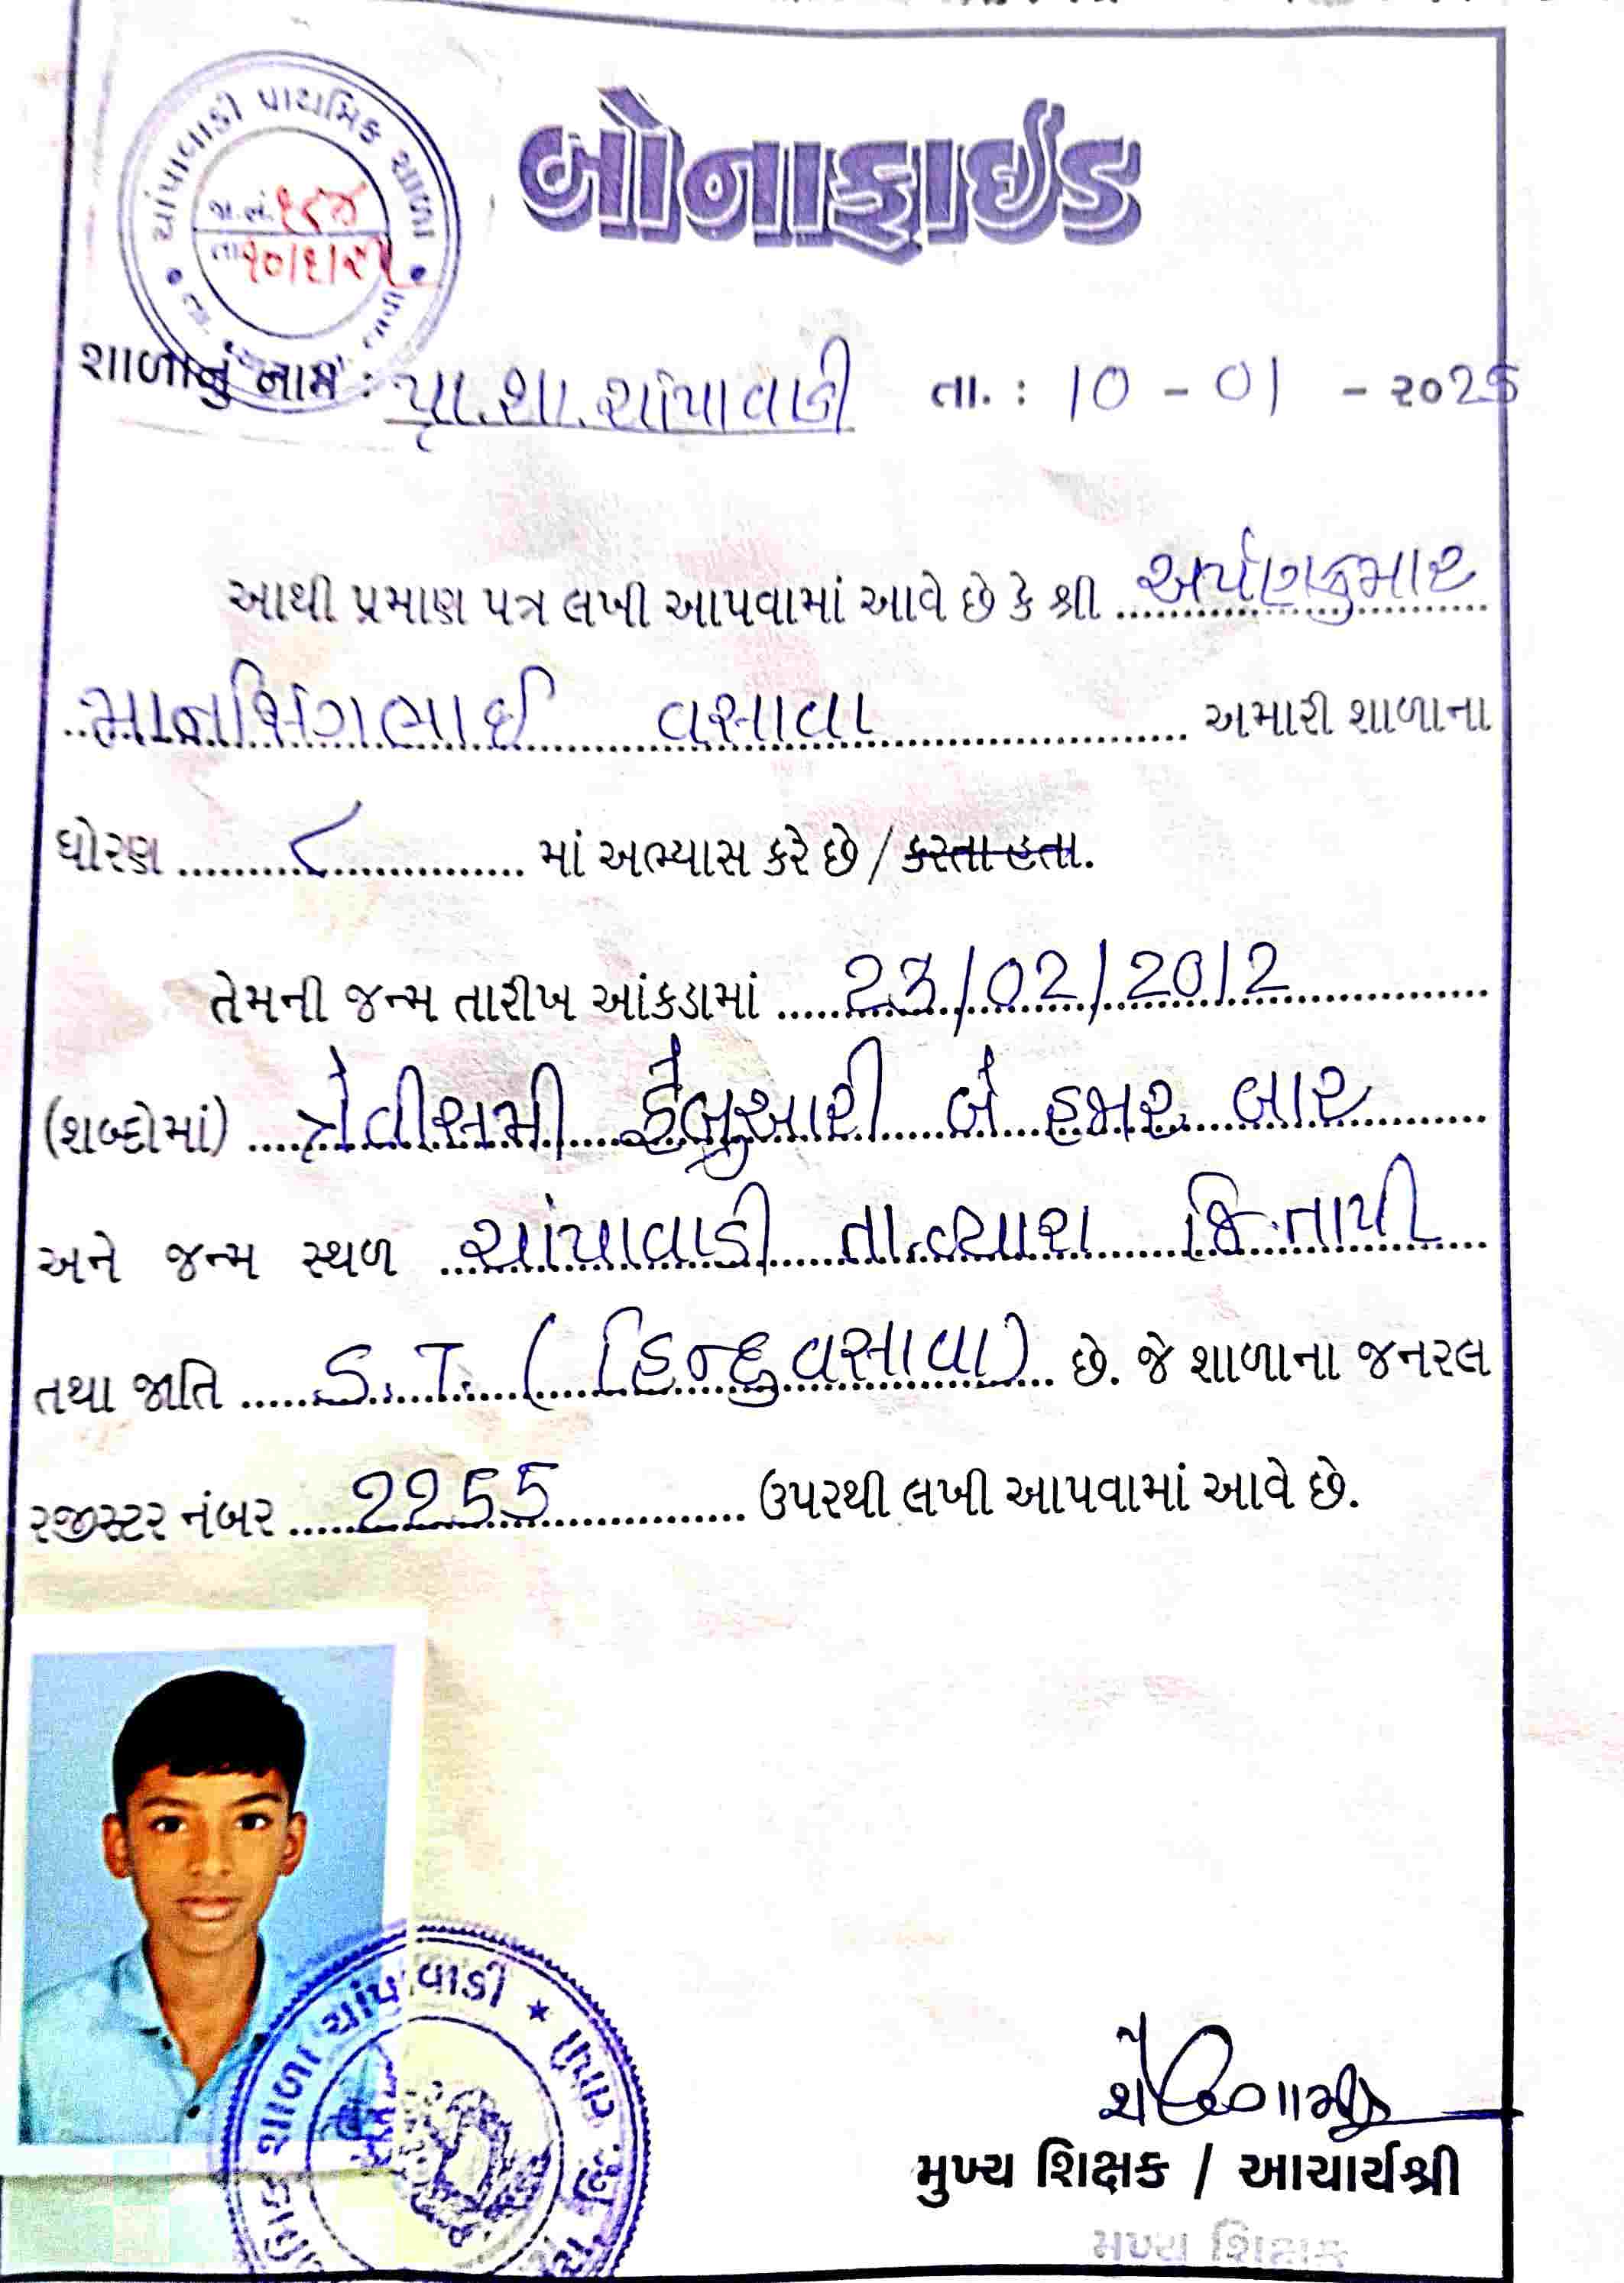 ચાંપાવાડી પ્રાથમિક શાળા
જા.નં. ૧૮૪
તા ૧૦/૧/૨૫
બોનાફાઈડ
શાળાનું નામ : પ્રા.શા. ચાંપાવાડી તા. : 10 - 01 - ૨૦25
આથી પ્રમાણ પત્ર લખી આપવામાં આવે છે કે શ્રી અર્પણકુમાર
માનસિંગભાઈ વસાવા અમારી શાળાના
ધોરણ ૮ માં અભ્યાસ કરે છે / કરતા હતા.
તેમની જન્મ તારીખ આંકડામાં 23/02/2012
(શબ્દોમાં) ત્રેવીસમી ફેબ્રુઆરી બે હજાર બાર
અને જન્મ સ્થળ ચાંપાવાડી તા.વ્યારા જિ.તાપી
તથા જાતિ S.T. (હિન્દુ વસાવા) છે. જે શાળાના જનરલ
રજીસ્ટર નંબર 2255 ઉપરથી લખી આપવામાં આવે છે.
શાળા ચાંપાવાડી ★
મુખ્ય શિક્ષક / આચાર્યશ્રી
મુખ્ય શિક્ષક